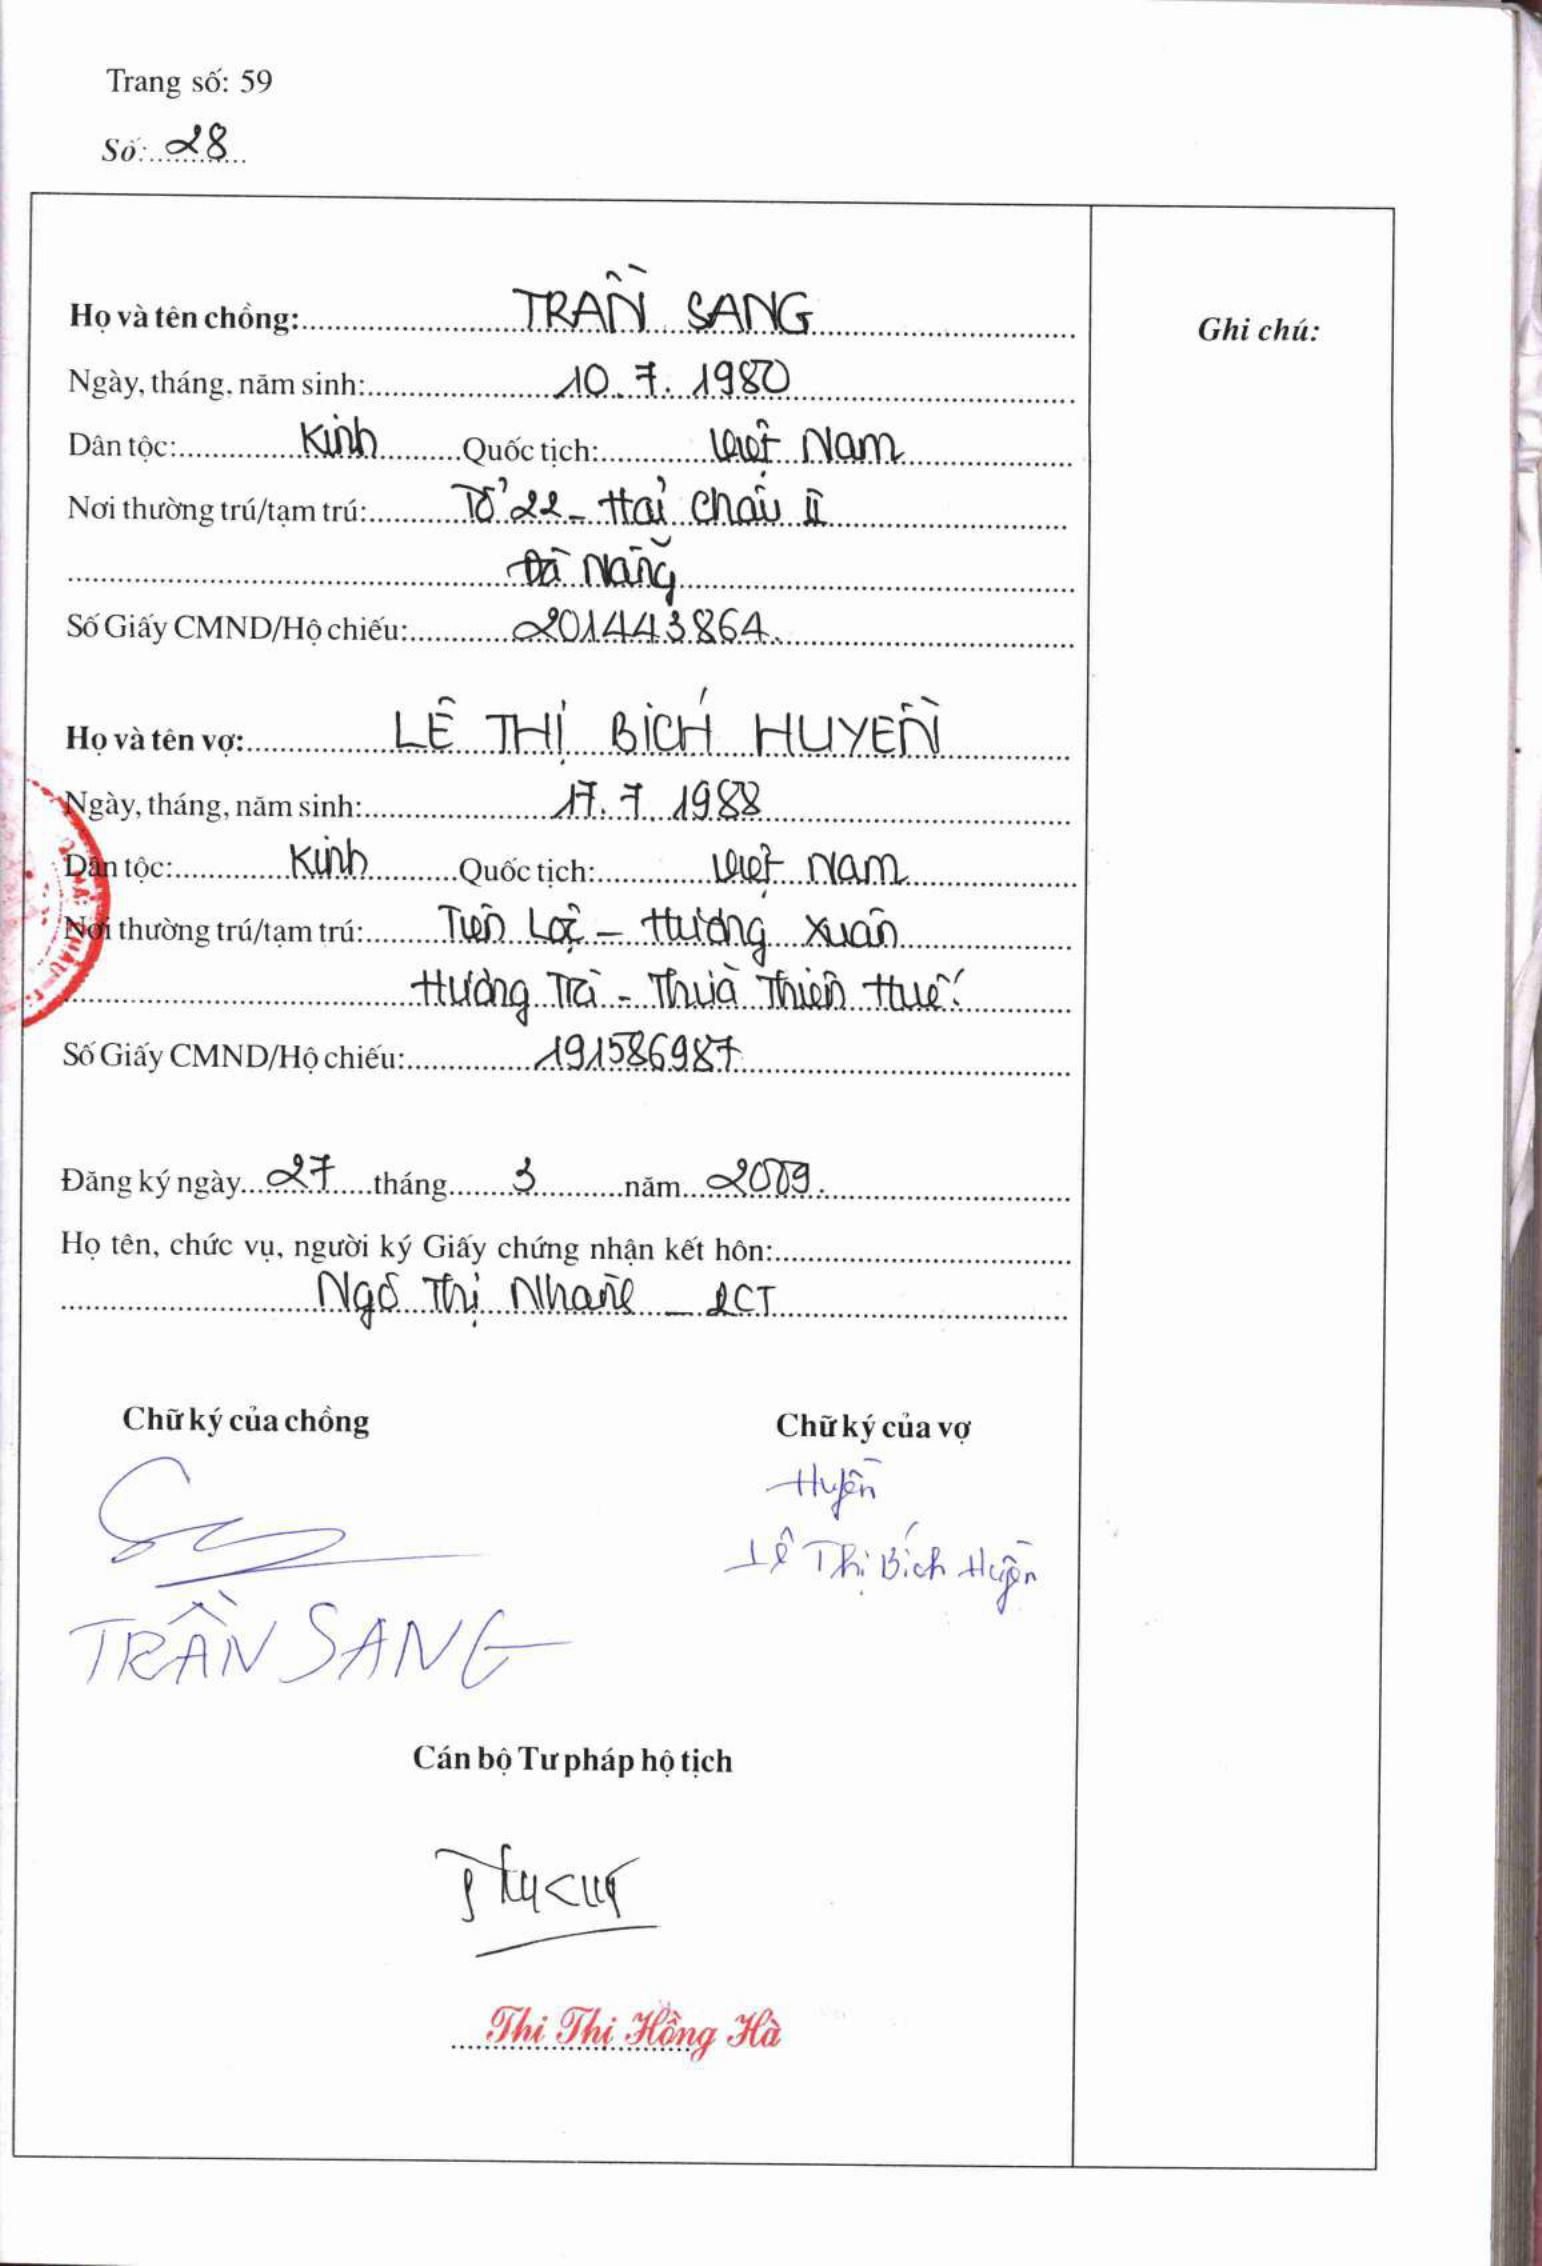 Trang số: 59
Số: 28
Họ và tên chồng: TRẦN SANG
Ghi chú:
Ngày, tháng, năm sinh: 10.7.1980
Dân tộc: Kinh Quốc tịch: Việt Nam
Nơi thường trú/tạm trú: Tổ 22 - Hải Châu II
Đà Nẵng
Số Giấy CMND/Hộ chiếu: 201443864.
Họ và tên vợ: LÊ THỊ BÍCH HUYỀN
Ngày, tháng, năm sinh: 17.7.1988
Dân tộc: Kinh Quốc tịch: Việt Nam
Nơi thường trú/tạm trú: Tiên Lộc - Hương Xuân
Hương Trà - Thừa Thiên Huế.
Số Giấy CMND/Hộ chiếu: 191586987
Đăng ký ngày 27 tháng 3 năm 2009.
Họ tên, chức vụ, người ký Giấy chứng nhận kết hôn:
Ngô Thị - PCT
Chữ ký của chồng
Chữ ký của vợ
Huyền
Lê Thị Bích Huyền
TRẦN SANG
Cán bộ Tư pháp hộ tịch
Thi Thị Hồng Hà